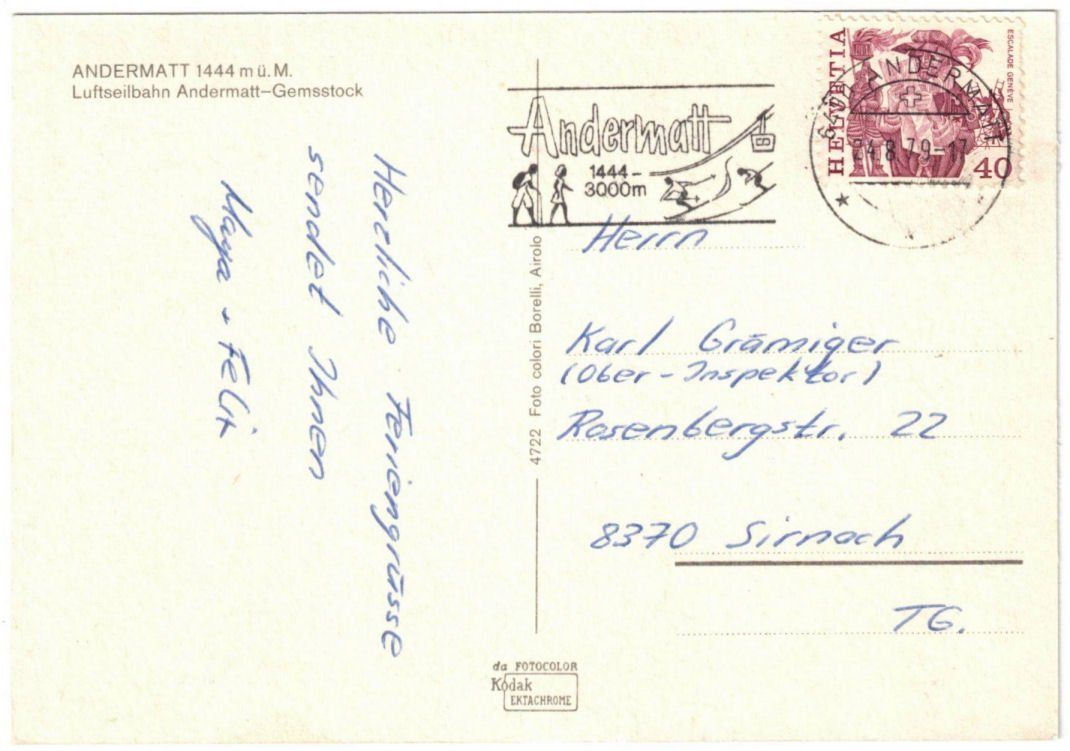 ANDERMATT 1444 m ü. M.
Luftseilbahn Andermatt–Gemsstock
Herzliche Feriengrüsse
sendet Ihnen
Maya + Felix
4722 Foto colori Borelli, Airolo
Andermatt
1444 –
3000m
HELVETIA
ESCALADE GENÈVE
40
ANDERMATT
24.8.79–17
Herrn
Karl Grämiger
(Ober-Inspektor)
Rosenbergstr. 22
8370 Sirnach
TG.
da FOTOCOLOR
Kodak
EKTACHROME